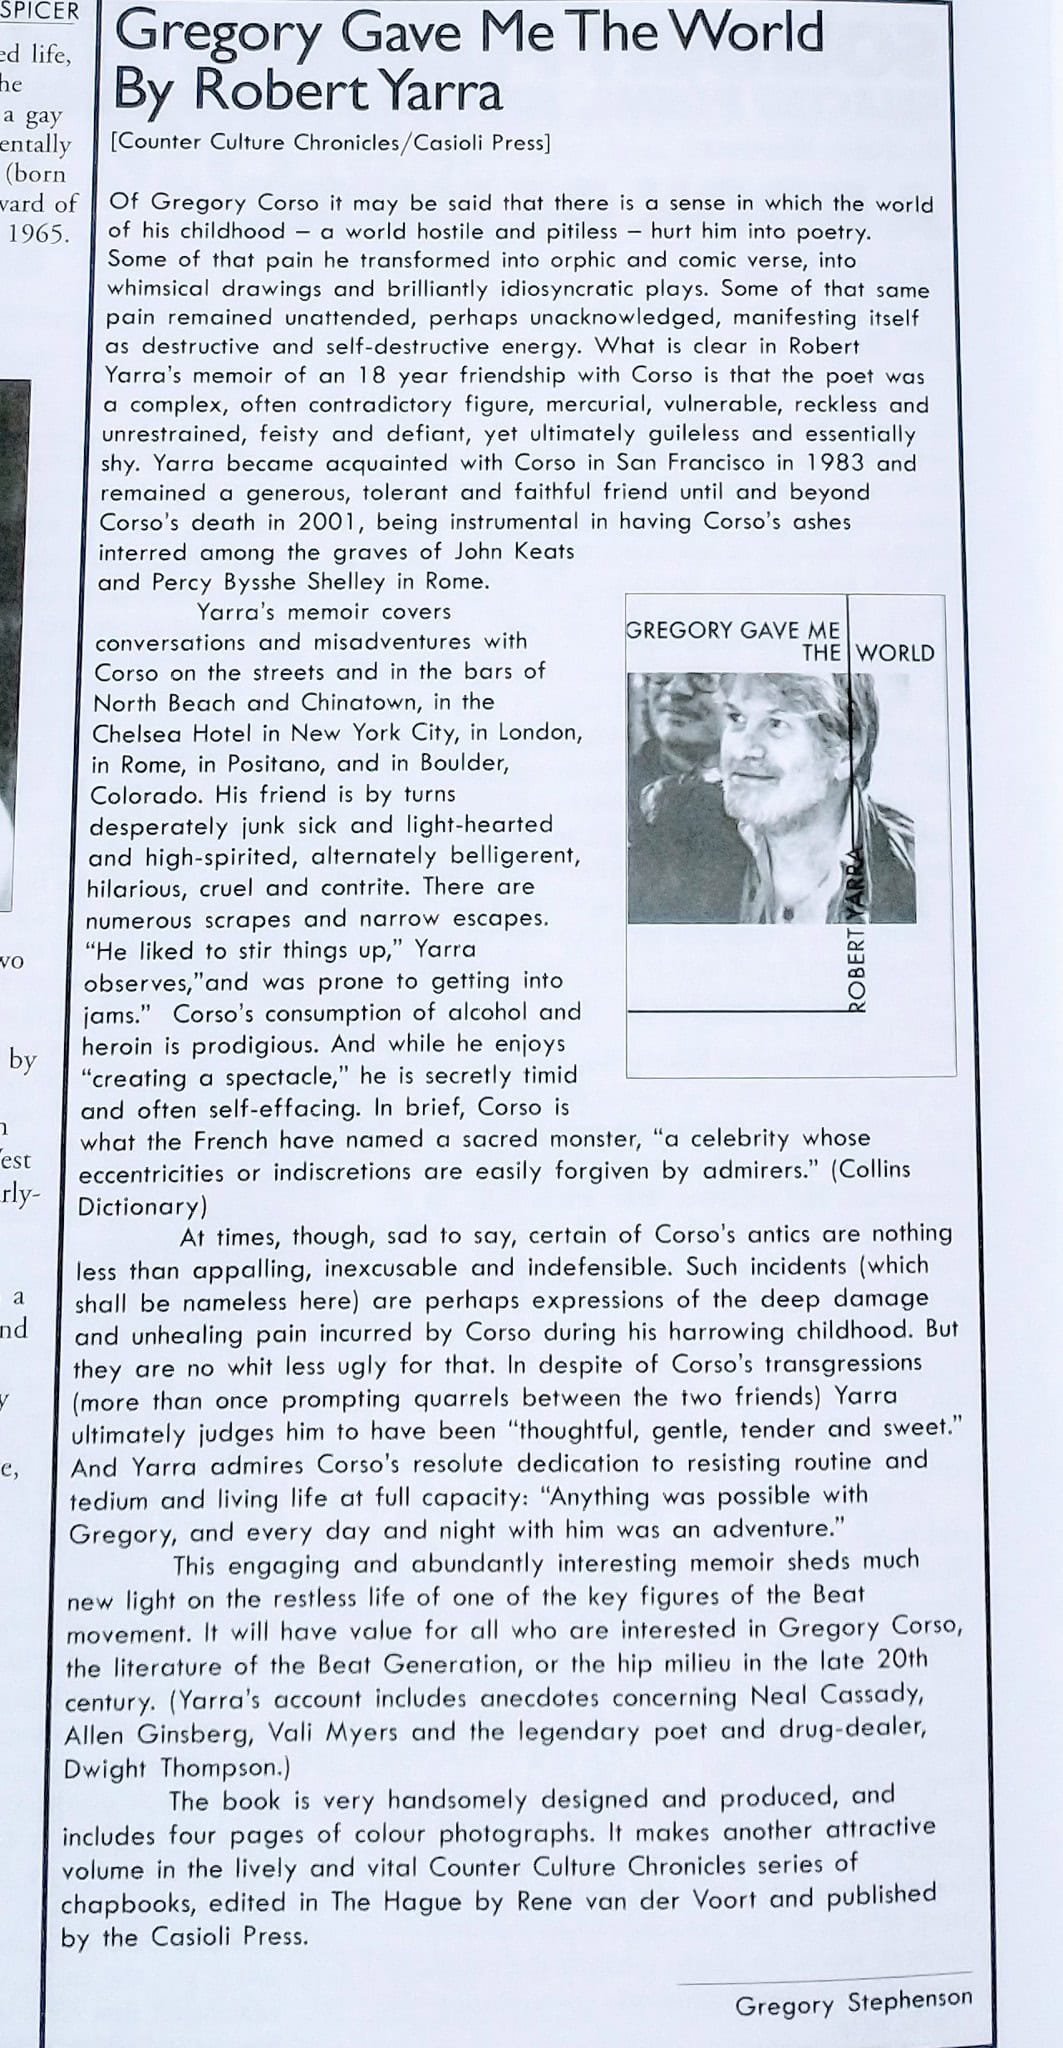 SPICER
ed life,
he
a gay
entally
(born
vard of
1965.
vo
by
n
est
rly-
a
nd
y
e,
Gregory Gave Me The World
By Robert Yarra
[Counter Culture Chronicles/Casioli Press]
Of Gregory Corso it may be said that there is a sense in which the world
of his childhood – a world hostile and pitiless – hurt him into poetry.
Some of that pain he transformed into orphic and comic verse, into
whimsical drawings and brilliantly idiosyncratic plays. Some of that same
pain remained unattended, perhaps unacknowledged, manifesting itself
as destructive and self-destructive energy. What is clear in Robert
Yarra's memoir of an 18 year friendship with Corso is that the poet was
a complex, often contradictory figure, mercurial, vulnerable, reckless and
unrestrained, feisty and defiant, yet ultimately guileless and essentially
shy. Yarra became acquainted with Corso in San Francisco in 1983 and
remained a generous, tolerant and faithful friend until and beyond
Corso's death in 2001, being instrumental in having Corso's ashes
interred among the graves of John Keats
and Percy Bysshe Shelley in Rome.
Yarra's memoir covers
conversations and misadventures with
Corso on the streets and in the bars of
North Beach and Chinatown, in the
Chelsea Hotel in New York City, in London,
in Rome, in Positano, and in Boulder,
Colorado. His friend is by turns
desperately junk sick and light-hearted
and high-spirited, alternately belligerent,
hilarious, cruel and contrite. There are
numerous scrapes and narrow escapes.
“He liked to stir things up,” Yarra
observes,”and was prone to getting into
jams.” Corso's consumption of alcohol and
heroin is prodigious. And while he enjoys
“creating a spectacle,” he is secretly timid
and often self-effacing. In brief, Corso is
what the French have named a sacred monster, “a celebrity whose
eccentricities or indiscretions are easily forgiven by admirers.” (Collins
Dictionary)
At times, though, sad to say, certain of Corso's antics are nothing
less than appalling, inexcusable and indefensible. Such incidents (which
shall be nameless here) are perhaps expressions of the deep damage
and unhealing pain incurred by Corso during his harrowing childhood. But
they are no whit less ugly for that. In despite of Corso's transgressions
(more than once prompting quarrels between the two friends) Yarra
ultimately judges him to have been “thoughtful, gentle, tender and sweet.”
And Yarra admires Corso's resolute dedication to resisting routine and
tedium and living life at full capacity: “Anything was possible with
Gregory, and every day and night with him was an adventure.”
This engaging and abundantly interesting memoir sheds much
new light on the restless life of one of the key figures of the Beat
movement. It will have value for all who are interested in Gregory Corso,
the literature of the Beat Generation, or the hip milieu in the late 20th
century. (Yarra's account includes anecdotes concerning Neal Cassady,
Allen Ginsberg, Vali Myers and the legendary poet and drug-dealer,
Dwight Thompson.)
The book is very handsomely designed and produced, and
includes four pages of colour photographs. It makes another attractive
volume in the lively and vital Counter Culture Chronicles series of
chapbooks, edited in The Hague by Rene van der Voort and published
by the Casioli Press.
Gregory Stephenson
GREGORY GAVE ME
THE WORLD
ROBERT YARRA